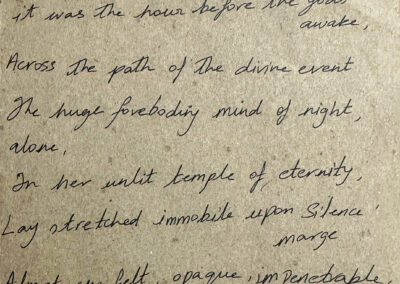 it was the hour before the gods
awake,
Across the path of the divine event
The huge foreboding mind of night,
alone,
In her unlit temple of eternity,
Lay stretched immobile upon Silence'
marge
Almost one felt, opaque, impenetrable,